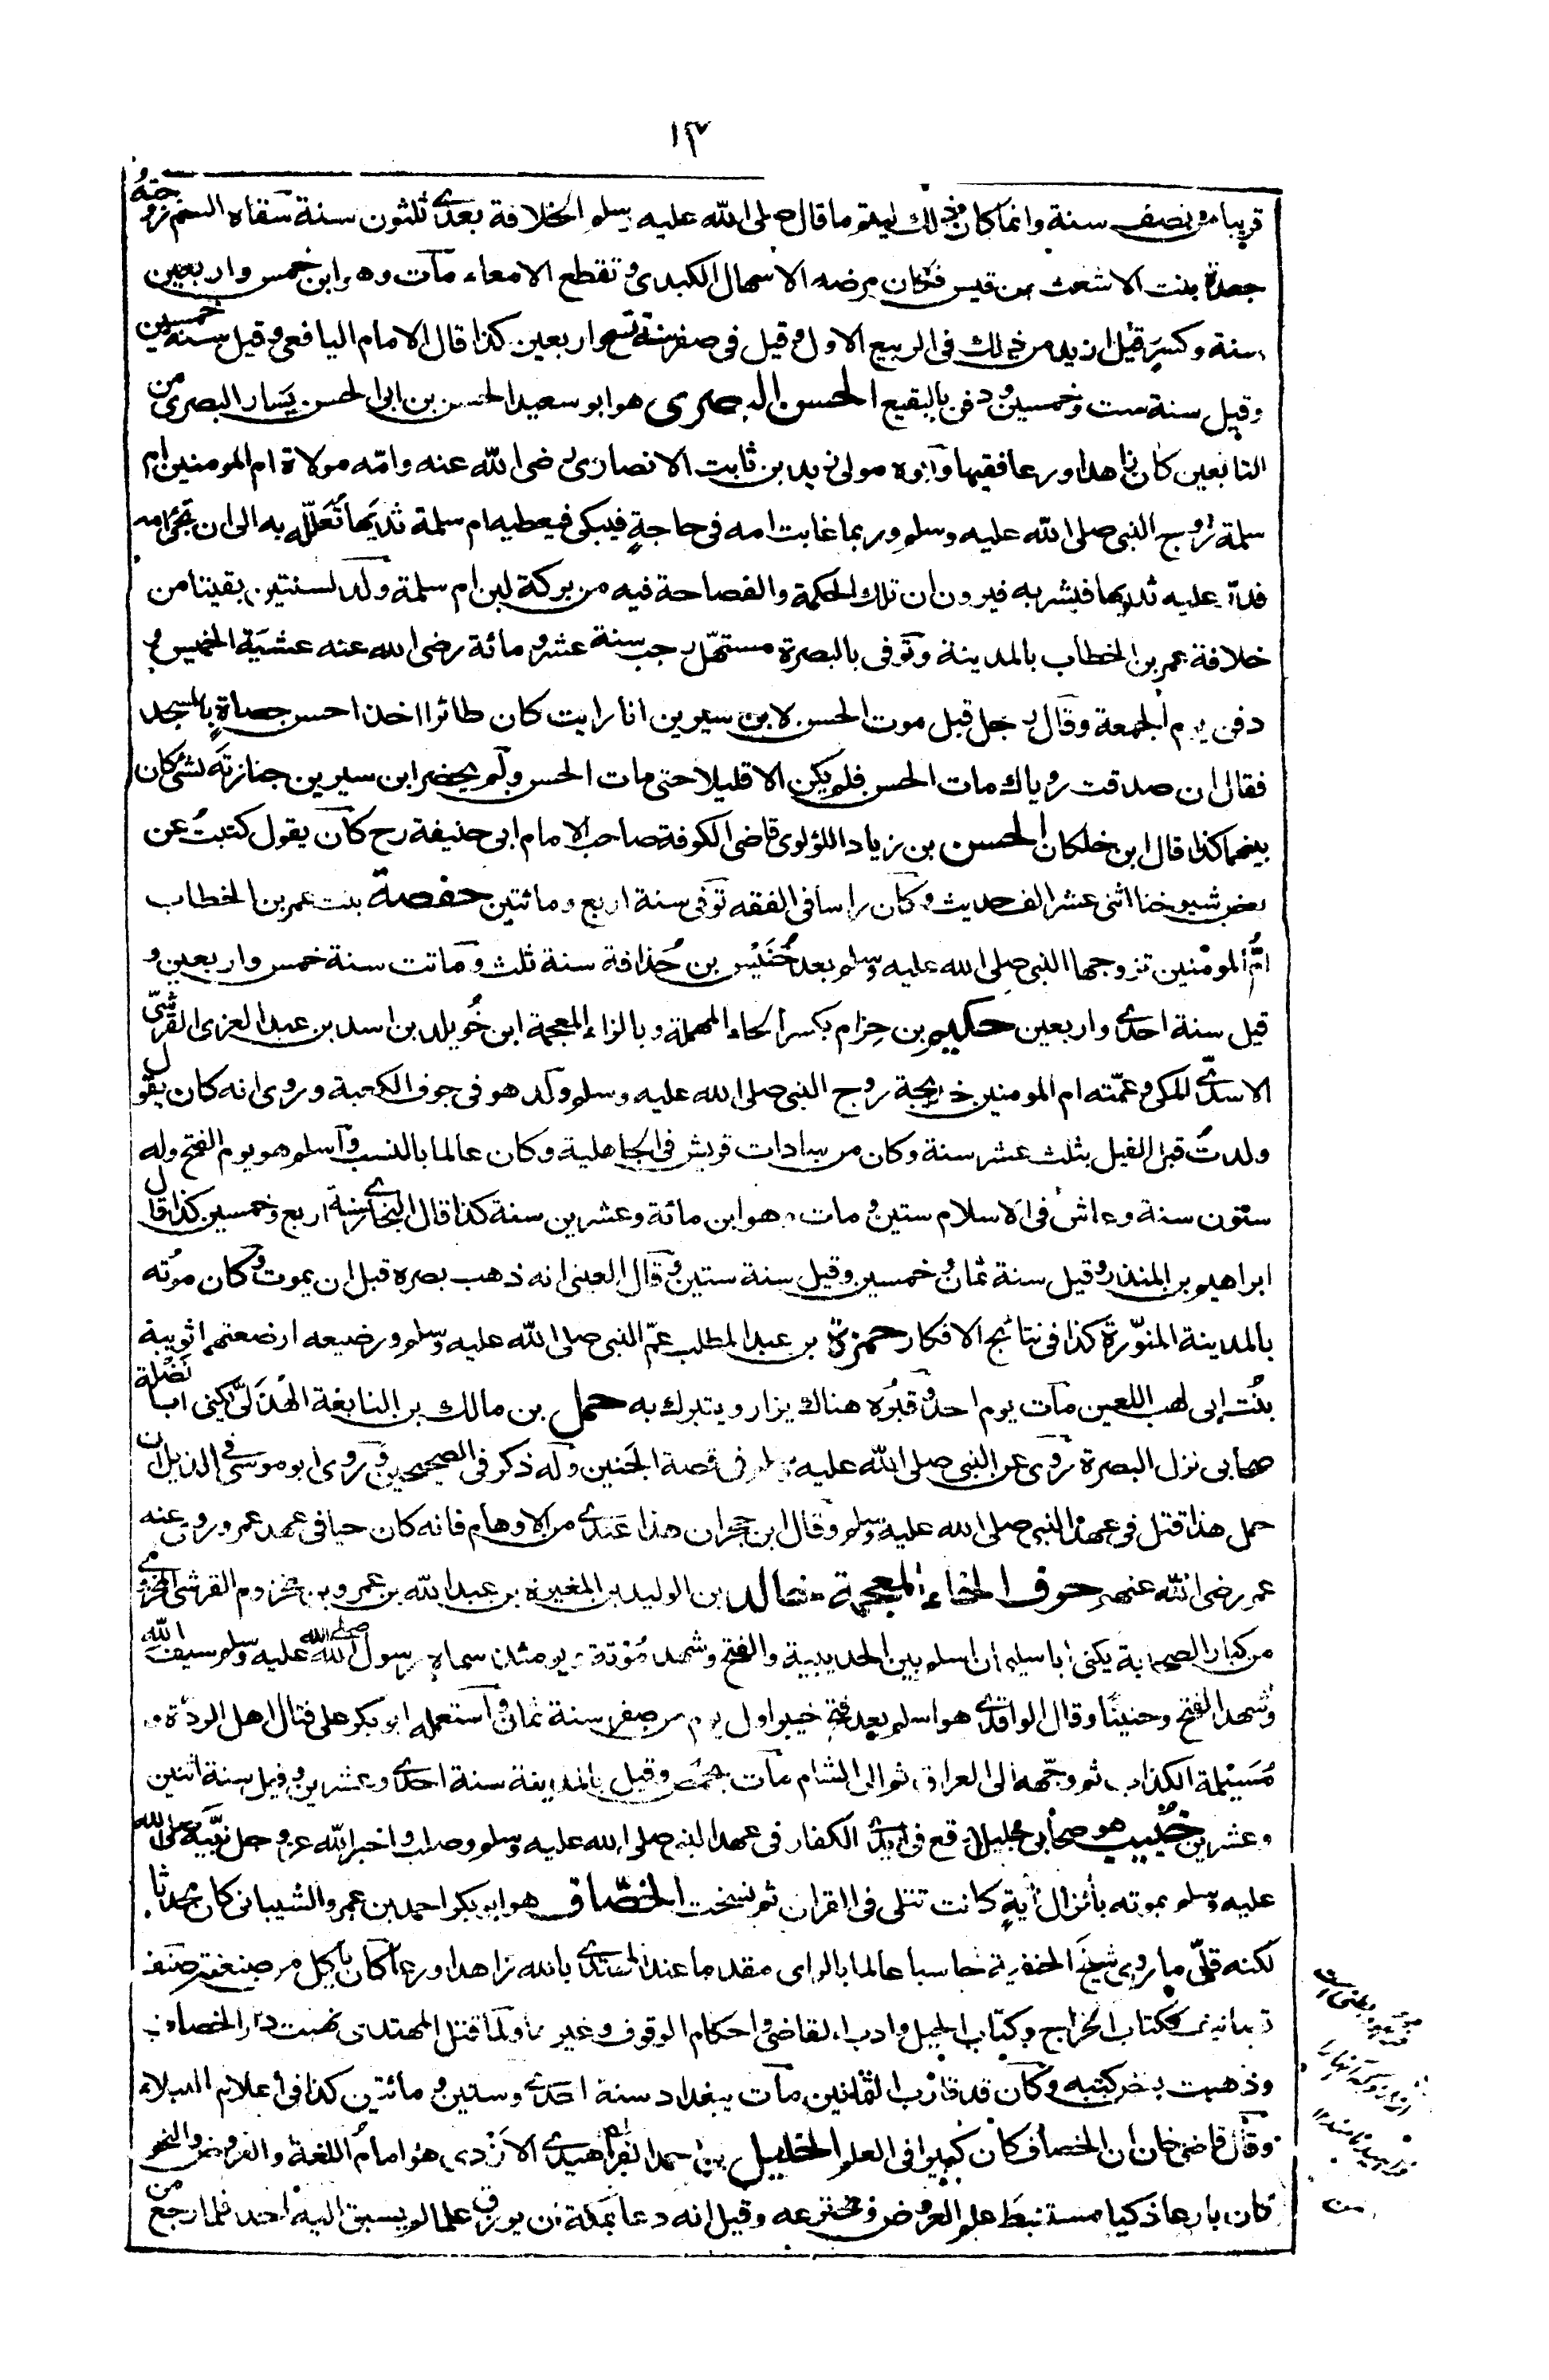 ١٣
قريبا من نصف سنة وانما كان ذلك ليتم ما قال صلى الله عليه وسلم الخلافة بعدى ثلثون سنة سقاه السم زوجته
جعدة بنت الاشعث بن قيس فكان مرضه الاسهال الكبدى و تقطع الامعاء مات وهو ابن خمس واربعين
سنة وكسر قيل ازيد من ذلك فى الربيع الاول و قيل فى صفر سنة تسع واربعين كذا قال الامام اليافعى وقيل سنة خمسين
وقيل سنة ست وخمسين و دفن بالبقيع الحسن البصرى هو ابو سعيد الحسن بن ابى الحسن يسار البصرى من
التابعين كان زاهدا ورعا فقيها وابوه مولى زيد بن ثابت الانصارى رضى الله عنه وامّه مولاة ام المومنين ام
سلمة زوج النبى صلى الله عليه وسلم وربما غابت امه فى حاجةٍ فيبكى فيعطيه ام سلمة ثديها تعلّله به الى ان تجئ امه
فدرّ عليه ثديها فيشربه فيرون ان تلك الحكمة والفصاحة فيه من بركة لبن ام سلمة ولد لسنتين بقيتا من
خلافة عمر بن الخطاب بالمدينة وتوفى بالبصرة مستهلّ رجب سنة عشر و مائة رضى الله عنه عشيّة الخميس و
دفن يوم الجمعة وقال رجل قبل موت الحسن لابن سيرين انا رايت كان طائرا اخذ احسن حصاةٍ بالمسجد
فقال ان صدقت روياك مات الحسن فلم يكن الا قليلا حتى مات الحسن ولم يحضر ابن سيرين جنازته لشئ كان
بينهما كذا قال ابن خلكان الحسن بن زياد اللؤلوى قاضى الكوفة صاحب الامام ابى حنيفة رح كان يقول كتبت عن
بعض شيوخنا اثنى عشر الف حديث وكان راسا فى الفقه توفى سنة اربع ومائتين حفصة بنت عمر بن الخطاب
امّ المومنين تزوجها النبى صلى الله عليه وسلم بعد خنيس بن حذافة سنة ثلث وماتت سنة خمس واربعين و
قيل سنة احدى واربعين حكيم بن حزام بكسر الحاء المهملة وبالزاء المعجمة ابن خويلد بن اسد بن عبد العزى القرشىّ
الاسدىّ المكى وعمّته ام المومنين خديجة زوج النبى صلى الله عليه وسلم ولد هو فى جوف الكعبة وروى انه كان يقول
ولدت قبل الفيل بثلث عشر سنة وكان من سادات قريش فى الجاهلية وكان عالما بالنسب واسلم هو يوم الفتح وله
ستون سنة وعاش فى الاسلام ستين و مات وهو ابن مائة وعشرين سنة كذا قال البخارى سنة اربع وخمسين كذا قال
ابراهيم بن المنذر وقيل سنة ثمان و خمسين وقيل سنة ستين و قال العينى انه ذهب بصره قبل ان يموت وكان موته
بالمدينة المنوّرة كذا فى نتائج الافكار حمزة بن عبد المطلب عمّ النبى صلى الله عليه وسلم ورضيعه ارضعتهما ثويبة
بنت ابى لهب اللعين مات يوم احد و قبره هناك يزار ويتبرك به حمل بن مالك بن النابغة الهذلىّ يكنى ابا نضلة
صحابى نزل البصرة روى عن النبى صلى الله عليه وسلم فى قصة الجنين وله ذكر فى الصحيحين وروى ابو موسى فى الذيل ان
حمل هذا قتل فى عهد النبى صلى الله عليه وسلم وقال ابن حجر ان هذا عندى من الاوهام فانه كان حيا فى عهد عمر وروى عنه
عمر رضى الله عنهم حرف الخاء المعجمة خالد بن الوليد بن المغيرة بن عبد الله بن عمرو بن مخزوم القرشى المخزومى
من كبار الصحابة يكنى ابا سليمان اسلم بين الحديبية والفتح وشهد مؤتة ويومئذ سماه رسول الله صلى الله عليه وسلم سيف الله
وشهد الفتح وحنينا وقال الواقدى هو اسلم بعد فتح خيبر اول يوم من صفر سنة ثمان و استعمله ابو بكر على قتال اهل الردة و
مسيلمة الكذاب ثم وجّهه الى العراق ثم الى الشام مات بحمص وقيل بالمدينة سنة احدى وعشرين و قيل سنة اثنين
وعشرين خبيب هو صحابى جليل وقع فى ايدى الكفار فى عهد النبى صلى الله عليه وسلم وصلب واخبر الله عز و جل نبيّه صلى الله
عليه وسلم بموته بانزال آيةٍ كانت تتلى فى القران ثم نسخت الخصّاف هو ابو بكر احمد بن عمرو الشيبانى كان محدثا
لكنه قلّ ما روى شيخ الحنفية حاسبا عالما بالراى مقدما عند المهتدى بالله زاهدا ورعا كان ياكل من صنعته صنف
تصانيف ككتاب الخراج وكتاب الحيل وادب القاضى واحكام الوقوف وغيرها ولما قتل المهتدى نهبت دار الخصاف
وذهبت بعض كتبه وكان قد قارب الثمانين مات ببغداد سنة احدى وستين و مائتين كذا فى اعلام النبلاء
وقال قاضى خان ان الخصاف كان كبيرا فى العلم الخليل بن احمد الفراهيدى الازدى هو امام اللغة والعروض والنحو
كان بارعا ذكيا مستنبط علم العروض و مخترعه وقيل انه دعا بمكة ان يرزق علما لم يسبق اليه احد فلما رجع من